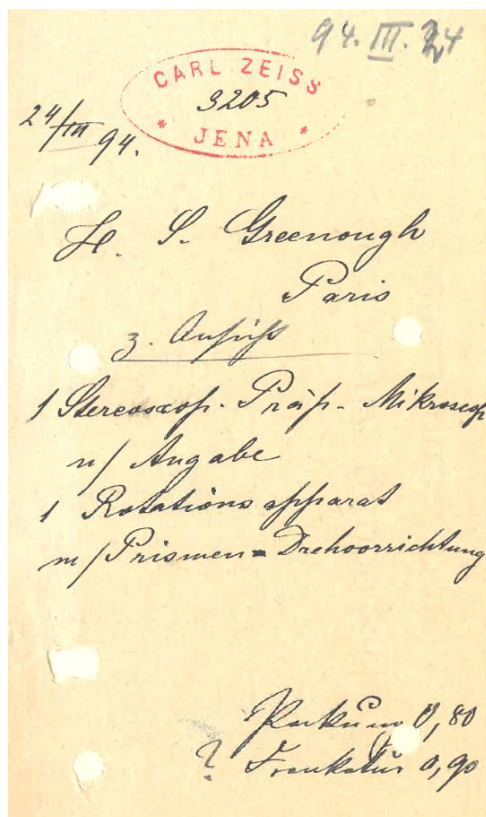 94. III. 24
CARL ZEISS
3205
* JENA *
24/III 94.
H. S. Greenough
Paris
z. Ansicht
1 Stereoscop. Präp. Mikroscop
n/ Angabe
1 Rotationsapparat
m/ Prismen-Drehvorrichtung
0,80
? Frankatur 0,90